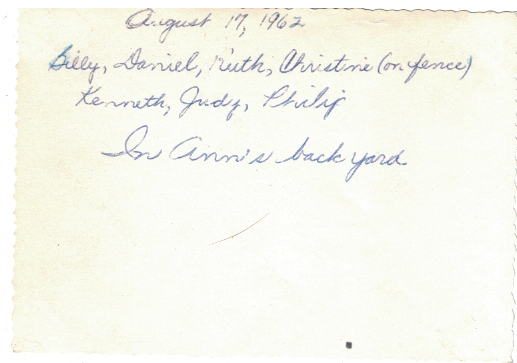 August 17, 1962
Billy, Daniel, Ruth, Christine (on fence)
Kenneth, Judy, Philip
In Ann's back yard